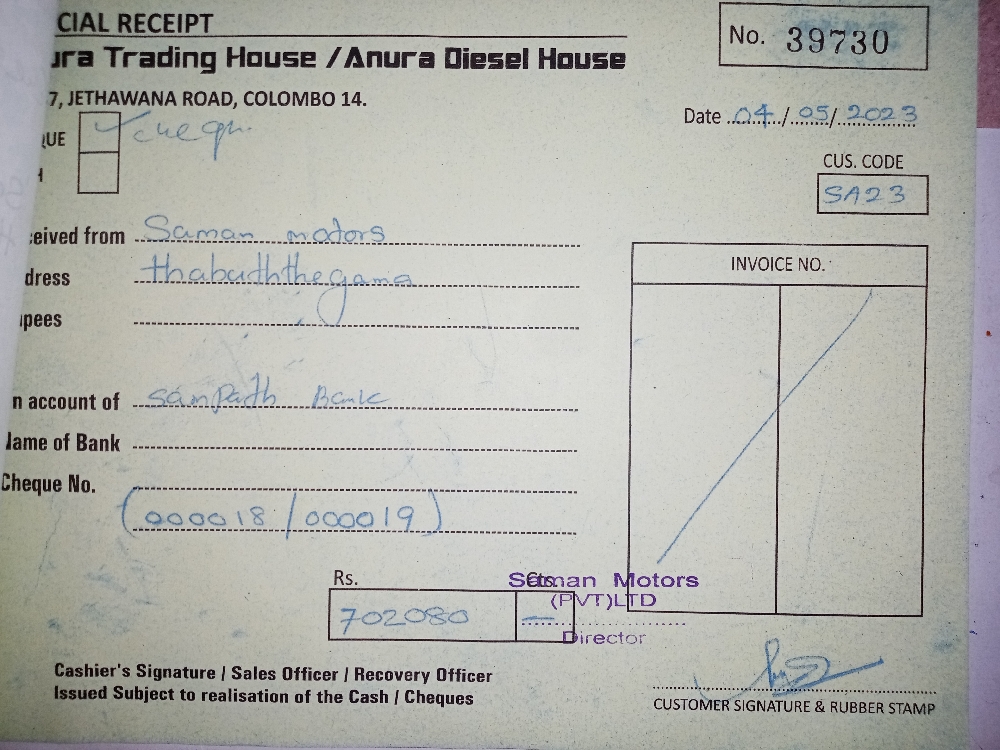 CIAL RECEIPT
No. 39730
ura Trading House / Anura Diesel House
7, JETHAWANA ROAD, COLOMBO 14.
Date 04/05/2023
QUE ✓ cheque
H
CUS. CODE
SA23
ceived from Saman motors
dress thabuththegama
upees
INVOICE NO.
n account of Sampath Bank
Name of Bank
Cheque No.
(000018/000019)
Rs. Cts.
702080 —
Saman Motors
(PVT)LTD
Director
Cashier's Signature / Sales Officer / Recovery Officer
Issued Subject to realisation of the Cash / Cheques
CUSTOMER SIGNATURE & RUBBER STAMP